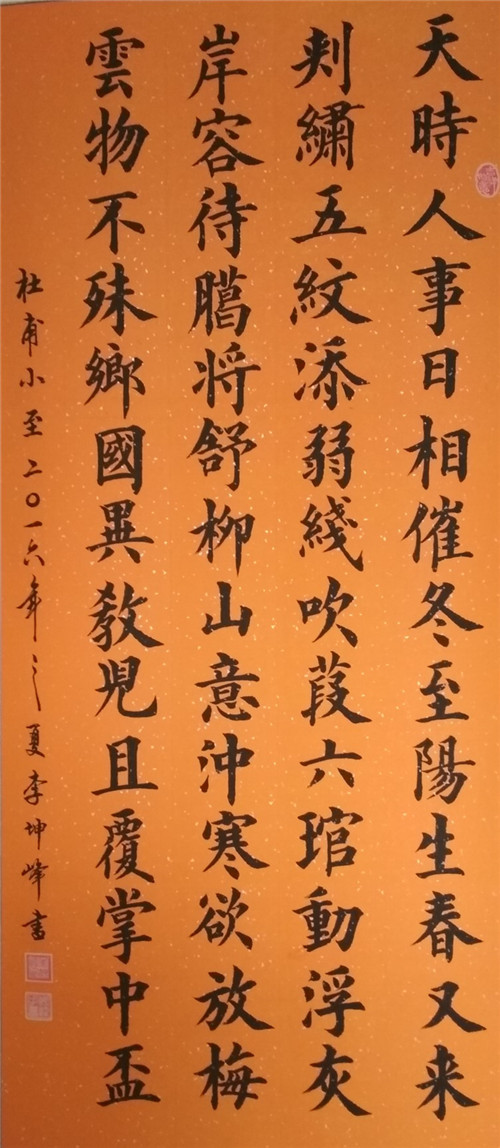 天時人事日相催冬至陽生春又来
刾繡五紋添弱綫吹葭六琯動浮灰
岸容待臈将舒柳山意沖寒欲放梅
雲物不殊鄉國異教兒且覆掌中盃
杜甫小至二〇一六年之夏李坤峰書